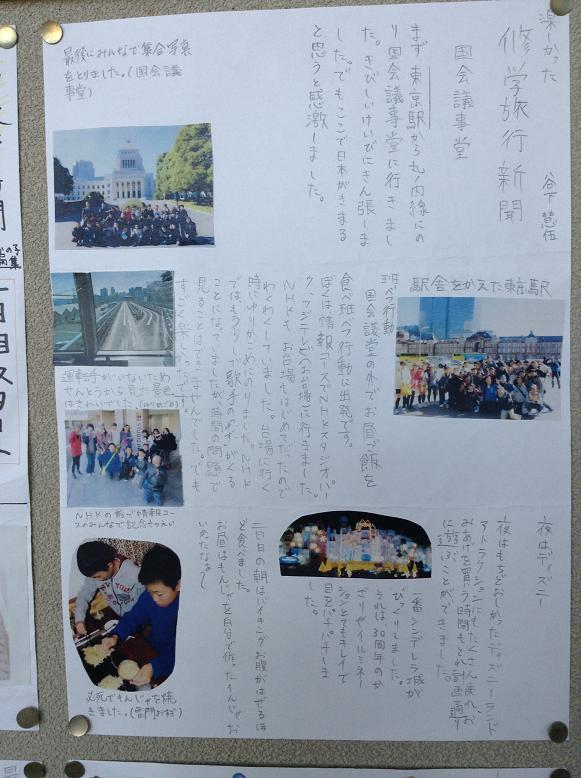 楽しかった
修学旅行新聞
谷下 慧伍
国会議事堂
まず、東京駅から丸内線にの
り国会議事堂に行きまし
た。きびしいけいびにきん張しま
した。でもここで日本がきまる
と思うと感激しました。
最後にみんなで集合写真
をとりました。(国会議
事堂)
駅舎をかえた東京駅
班べつ行動
国会議堂の外でお昼ご飯を
食べ班べつ行動に出発です。
ぼくは情報コースでNHKスタジオパー
ク、フジテレビのお台場に行きました。
NHKも、お台場もはじめてだったので
わくわくしていました。お台場に行く
時にゆりかごめにのりました。NHK
ではもうりし
歌手の
がくる
ことになっていましたが時間の問題で
見ることはできませんでした。でも
すごく楽し
運転手がいないため
せんとうから見た景色
はきれいでした(ゆりかごめ)
NHKの前で情報コー
スのみんなで記念さつえい
夜はディズニー
夜はまちどおしかったディズニーランド
アトラクションにもたくさん乗れ、お
みあげを買いう時間もとれ計画通り
に遊ぶことができました。
一番シンデレラ城が
びっくりしました。
それは30周年のか
ざりやイルミネー
ションとてもキレイで
目をパチパチしま
した。
二日目の朝はバイキングお腹がはずるほ
ど食べました。
お昼はもんじゃを自分で作ったもんじゃお
いかたなぁ〜
必死でもんじゃを焼
きました。(雷門